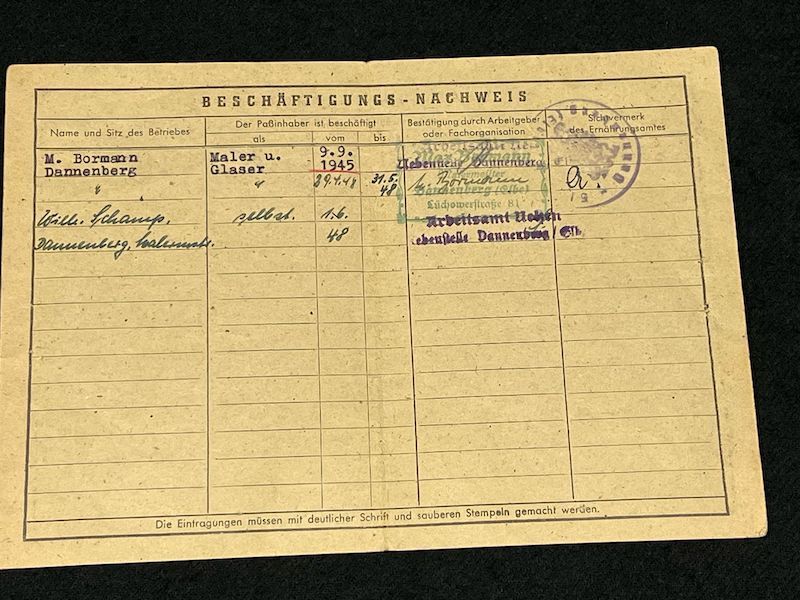 BESCHÄFTIGUNGS-NACHWEIS
Name und Sitz des Betriebes
Der Paßinhaber ist beschäftigt
als
vom
bis
Bestätigung durch Arbeitgeber
oder Fachorganisation
Sichtvermerk
des Ernährungsamtes
M. Bormann
Dannenberg
Maler u.
Glaser
9.9.
1945
Arbeitsamt
Nebenstelle Dannenberg
" "
"
29.4.48
31.5.
48
Bormann
Dannenberg (Elbe)
Lüchowerstraße 81
Willi. Schamp.
Dannenberg, Malermstr.
selbst.
1.6.
48
Arbeitsamt Uelzen
Nebenstelle Dannenberg / Elbe
Die Eintragungen müssen mit deutlicher Schrift und sauberen Stempeln gemacht werden.